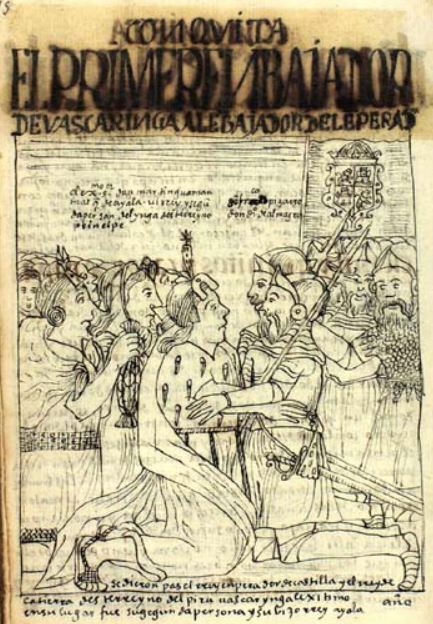 CONQVISTA
EL PRIMER EMBAJADOR
DE VASCAR INGA AL EBAJADOR DEL EPERAD
don martin guaman
mal q de ayala virrey y segū
da per son del ynga deste reyno
prinsipe
pizarro
don di de almagro
se dieron pas el rrey enperador de castilla y el rrey de
la tierra deste rreyno del piru uascar ynga lexitimo
en su lugar fue su segunda persona y su bizorrey ayala
año